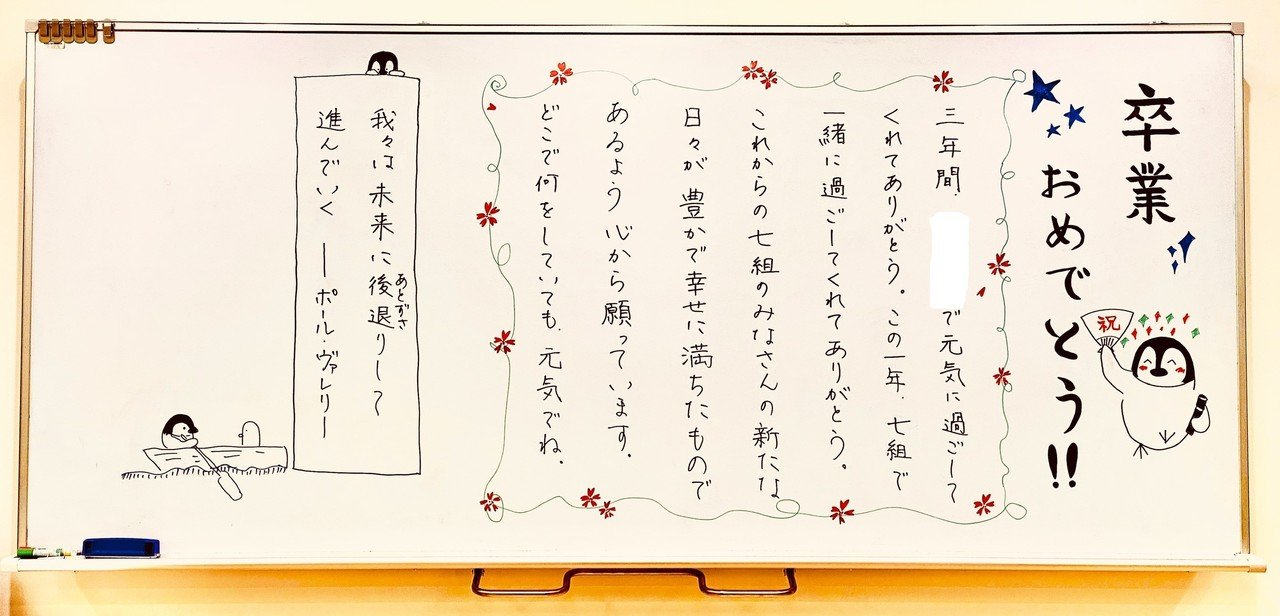 卒業
おめでとう!!
祝
三年間、で元気に過ごして
くれてありがとう。この一年、七組で
一緒に過ごしてくれてありがとう。
これからの七組のみなさんの新たな
日々が豊かで幸せに満ちたもので
あるよう心から願っています。
どこで何をしていても、元気でね。
我々は未来に後退りして
あとずさ
進んでいく ――ポール・ヴァレリー